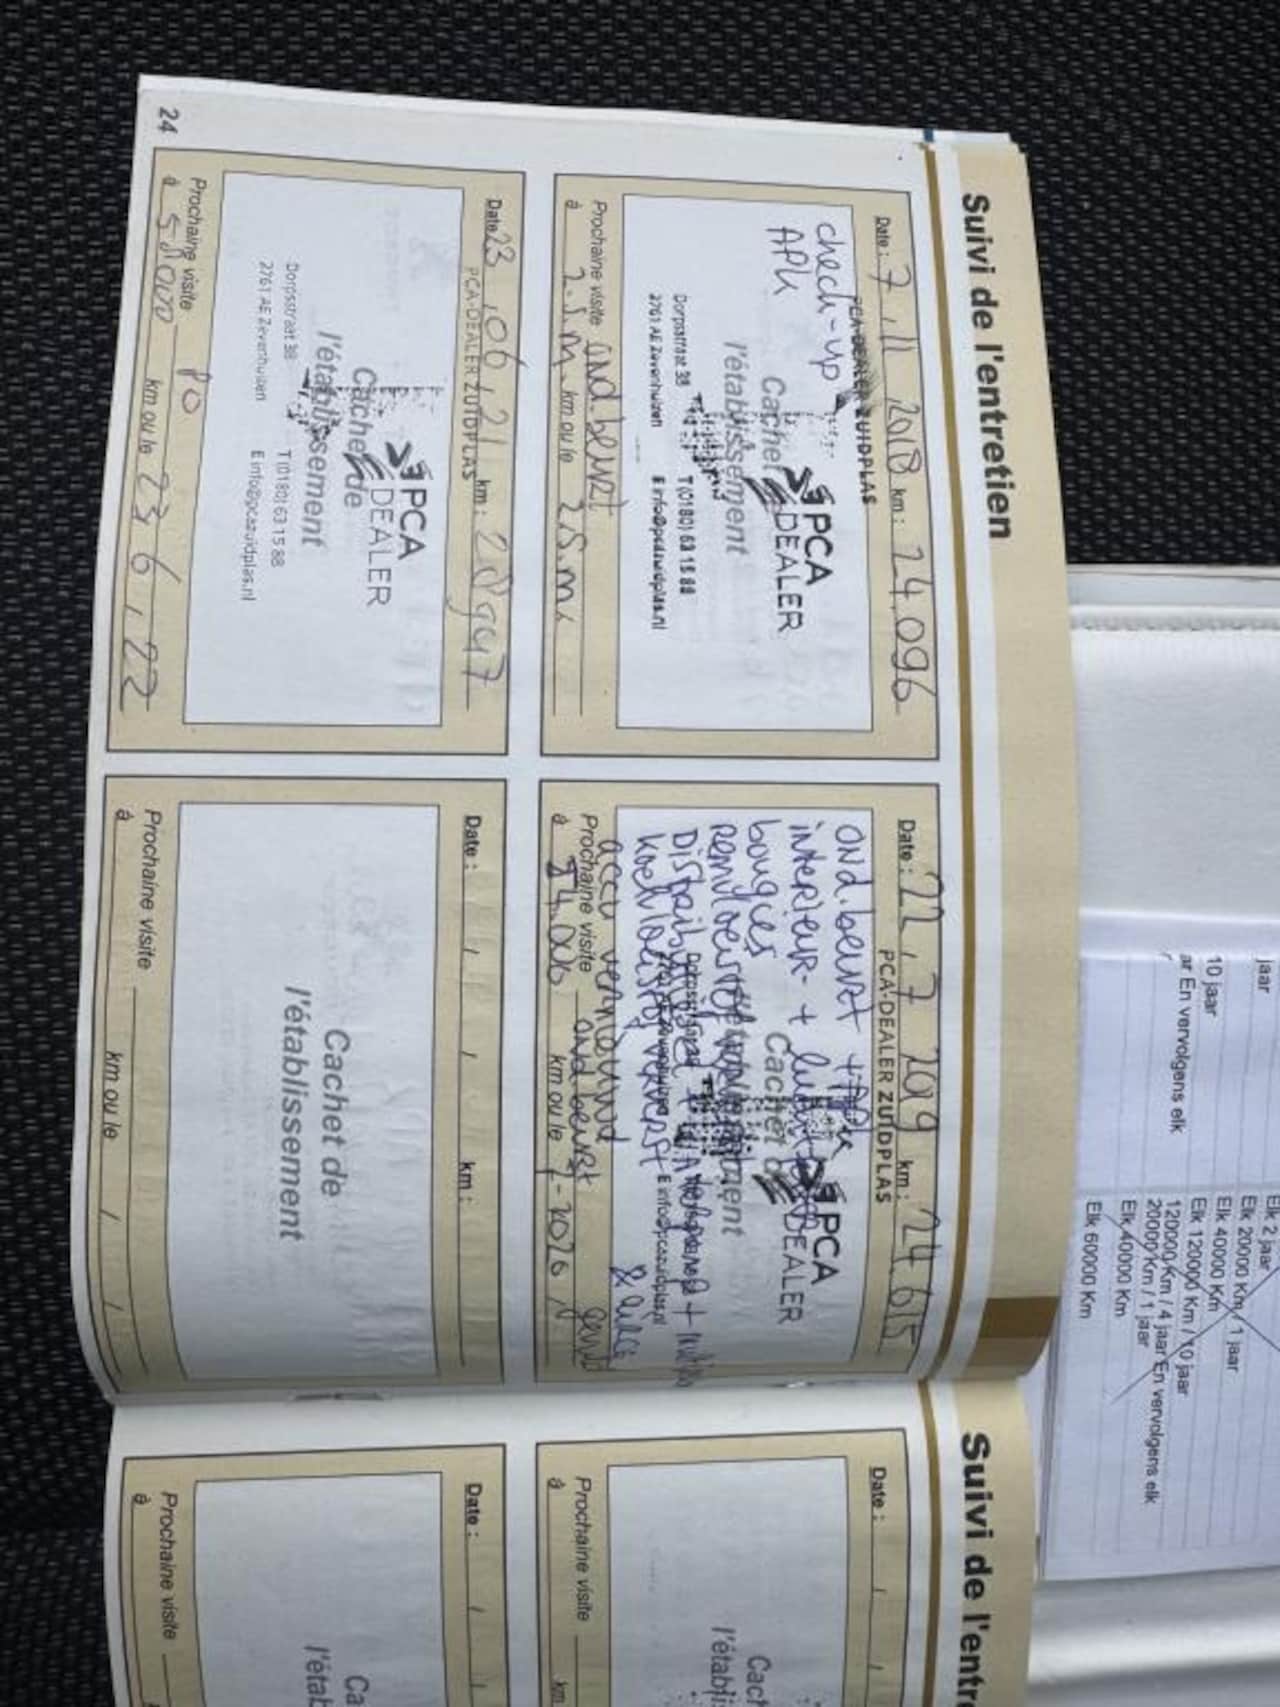 Suivi de l'entretien
Date : 7 . 11 2018 km : 24.096
PCA-DEALER ZUIDPLAS
check-up
APK
PCA
DEALER
Cachet
l'établissement
Dorpsstraat 38 T (0180) 63 15 88
2761 AE Zevenhuizen E info@pcazuidplas.nl
Prochaine visite ond.beurt
à km ou le
Date : 22 . 7 2019 km : 24.615
PCA-DEALER ZUIDPLAS
ond.beurt + APK
interieur- +
bougies
PCA
DEALER
Cachet
koelvloeistof ververst
E info@pcazuidplas.nl
accu vernieuwd
Prochaine visite ond beurt
à km ou le 7-2020
Date 23 . 06 . 21 km : 28947
PCA-DEALER ZUIDPLAS
PCA
DEALER
Cachet de
l'établissement
Dorpsstraat 38 T (0180) 63 15 88
2761 AE Zevenhuizen E info@pcazuidplas.nl
Prochaine visite
à km ou le 23 . 6 . 22
Date : km :
Cachet de
l'établissement
Prochaine visite
à km ou le
24
Suivi de l'entre
Date :
Cac
l'établi
Prochaine visite
à km
Date :
Ca
l'étab
Prochaine visite
à
jaar
10 jaar
ar En vervolgens elk
Elk 2 jaar
Elk 20000 Km / 1 jaar
Elk 40000 Km
Elk 120000 Km / 10 jaar
120000 Km / 4 jaar En vervolgens elk
20000 Km / 1 jaar
Elk 40000 Km
Elk 60000 Km